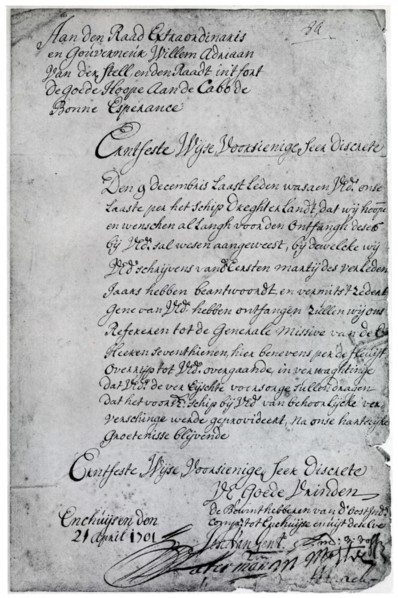 Aan den Raad Extraordinaris
en Gouverneur Willem Adriaan
van der Stell en den Raadt int fort
de Goede Hoope Aan de Cabo de
Bonne Esperance
Erntfeste Wijse Voorsienige Seer Discrete
Den 9 decembris laast leden was aen Vld. onse
laaste per het Schip Dreghterlandt, dat wij hoope
en wenschen al langh voor den ontfangh deses
bij Vld. sal wesen aangeweest, bij dewelke wij
Vld. schrijvens vanden Eersten martij des verleden
Jaars hebben beantwoordt, en vermits t zedert
Gene van Vld. hebben ontfangen zullen wij ons
Refereren tot de Generale Missive van de
Heeren seventhienen, hier benevens per de fluijt
Overrijp tot Vld. overgaande, in verwachtinge
dat Vld. de vereijschte voorsorge sullen dragen
dat het voorn. schip bij Vld. van behoorlijcke ver
verschinge werde geprovideert, na onse hartelijke
Groetenisse blijvende
Erntfeste Wijse Voorsienige Seer Discrete
Vl Goede Vrinden
De Bewinthebberen van d'Oost Ind.
Comp. tot
Enchuijsen den
21 April 1701